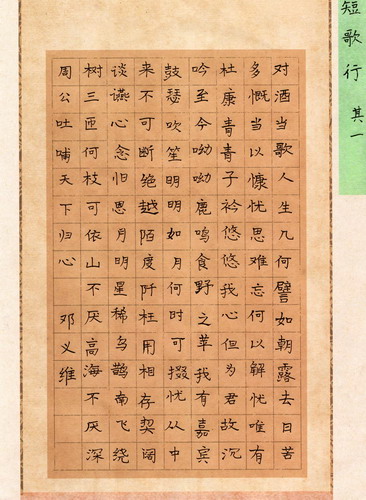 短歌行 其一
对酒当歌人生几何譬如朝露去日苦
多慨当以慷忧思难忘何以解忧唯有
杜康青青子衿悠悠我心但为君故沉
吟至今呦呦鹿鸣食野之苹我有嘉宾
鼓瑟吹笙明明如月何时可掇忧从中
来不可断绝越陌度阡枉用相存契阔
谈讌心念旧恩月明星稀乌鹊南飞绕
树三匝何枝可依山不厌高海不厌深
周公吐哺天下归心 邓义维